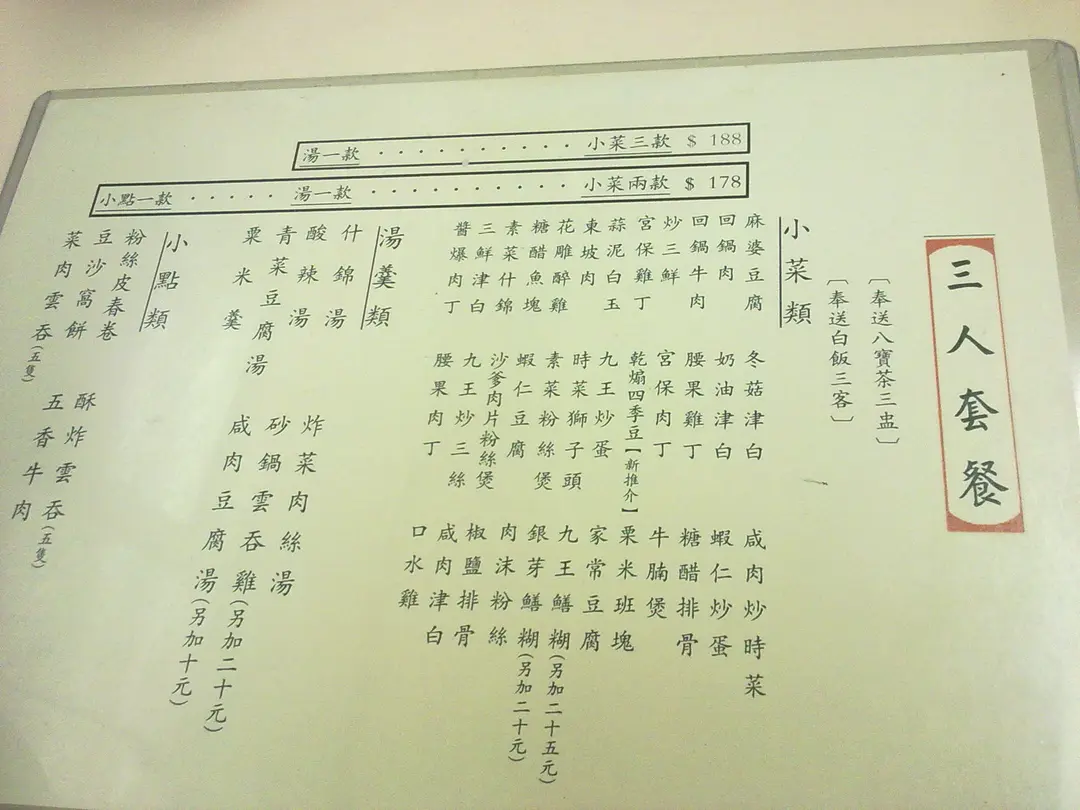 三人套餐
〔奉送八寶茶三盅〕
〔奉送白飯三客〕
湯一款 · · · · · · · · · · 小菜三款 $ 188
小點一款 · · · · · · · 湯一款 · · · · · · · · · · 小菜兩款 $ 178
小菜類
麻婆豆腐
回鍋肉
回鍋牛肉
炒三鮮
宮保雞丁
蒜泥白玉
東坡肉
花雕醉雞
糖醋魚塊
素菜什錦
三鮮津白
醬爆肉丁
冬菇津白
奶油津白
腰果雞丁
宮保肉丁
乾煸四季豆【新推介】
九王炒蛋
時菜獅子頭
素菜粉絲煲
蝦仁豆腐
沙爹肉片粉絲煲
九王炒三絲
腰果肉丁
咸肉炒時菜
蝦仁炒蛋
糖醋排骨
牛腩煲
粟米班塊
家常豆腐
九王鱔糊(另加二十五元)
銀芽鱔糊(另加二十元)
肉沫粉絲
椒鹽排骨
咸肉津白
口水雞
湯羹類
什錦湯
酸辣湯
青菜豆腐湯
粟米羹
炸菜肉絲湯
砂鍋雲吞雞湯(另加二十元)
咸肉豆腐湯(另加十元)
小點類
粉絲皮春卷
豆沙窩餅
菜肉雲吞(五隻)
酥炸雲吞(五隻)
五香牛肉